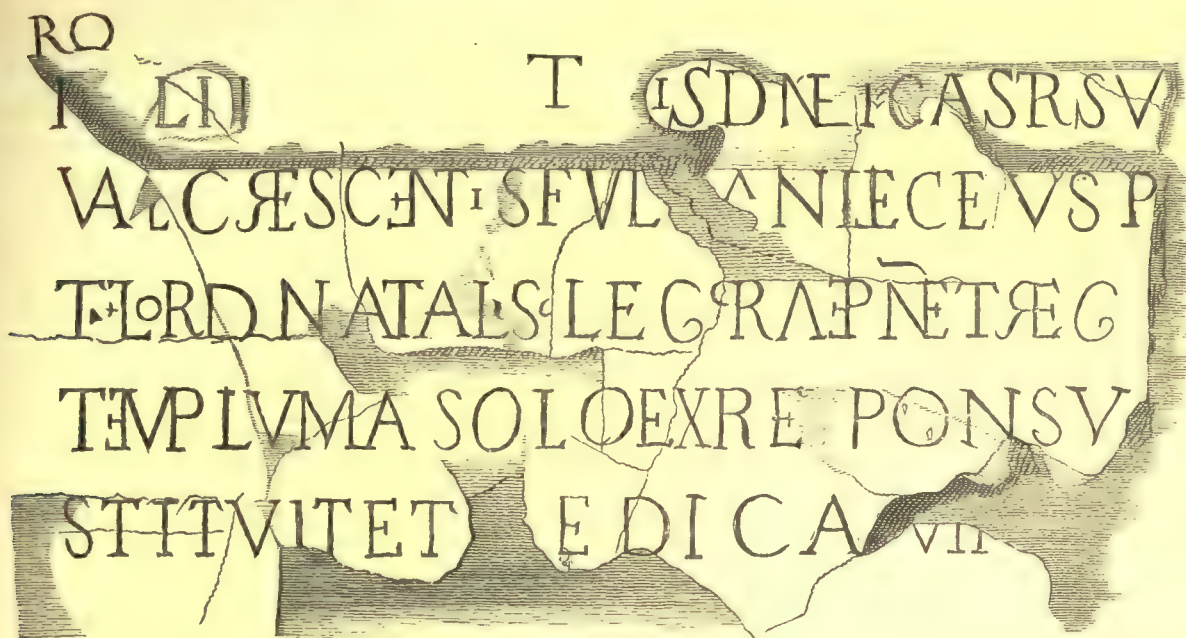 RO
I LII T ISDNEICASTRSV
VALCRESCENTISFVL ANIECEVSP
TFLORDNATALISCLEGPRAEPNETREG
TEMPLVMASOLOEXRE PONSV
STITVITET EDICA VII